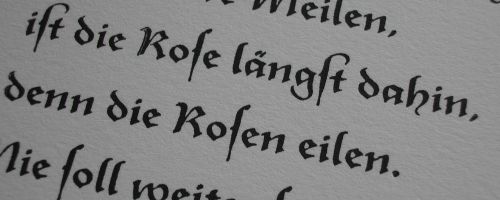 Weilen,
ist die Rose längst dahin,
denn die Rosen eilen.
soll